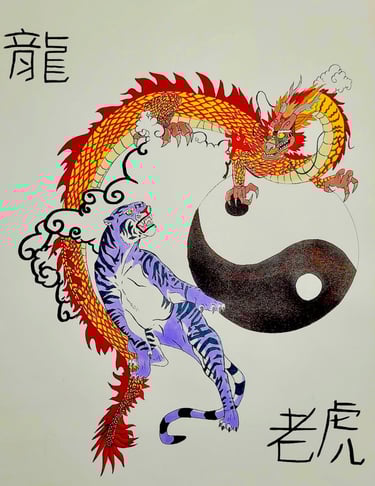 龍
老虎